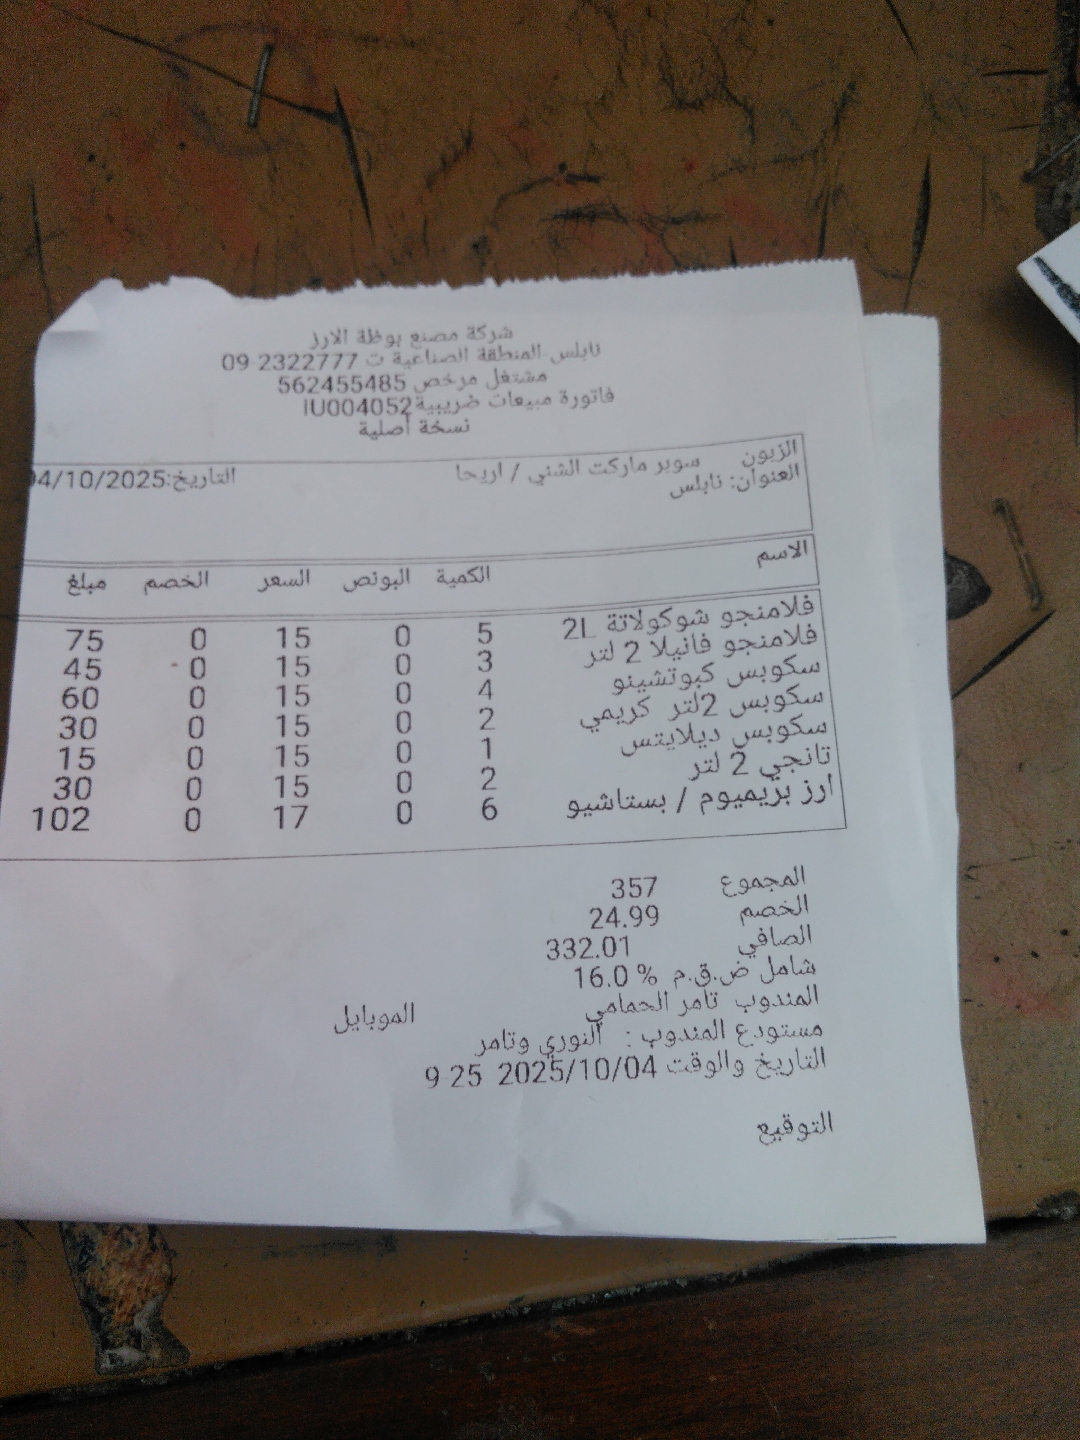 شركة مصنع بوظة الارز
نابلس المنطقة الصناعية ت 2322777 09
مشتغل مرخص 562455485
فاتورة مبيعات ضريبية IU004052
نسخة أصلية
الزبون سوبر ماركت الشني / اريحا التاريخ:04/10/2025
العنوان: نابلس
الاسم الكمية البونص السعر الخصم مبلغ
فلامنجو شوكولاتة 2L 5 0 15 0 75
فلامنجو فانيلا 2 لتر 3 0 15 0 45
سكوبس كبوتشينو 4 0 15 0 60
سكوبس 2لتر كريمي 2 0 15 0 30
سكوبس ديلايتس 1 0 15 0 15
تانجي 2 لتر 2 0 15 0 30
ارز بريميوم / بستاشيو 6 0 17 0 102
المجموع 357
الخصم 24.99
الصافي 332.01
شامل ض.ق.م % 16.0
المندوب تامر الحمامي الموبايل
مستودع المندوب : النوري وتامر
التاريخ والوقت 2025/10/04 25 9
التوقيع